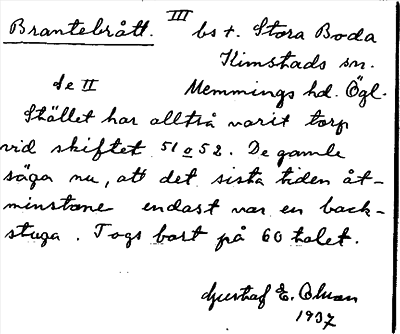 Brantebrått. III bs t. Stora Boda
Kimstads sn.
se II Memmings hd. Ögl.
Stället har alltså varit torp
vid skiftet 51 o 52. De gamle
säga nu, att det sista tiden åt-
minstone endast var en back-
stuga. Togs bort på 60 talet.
Gustaf E.
1937